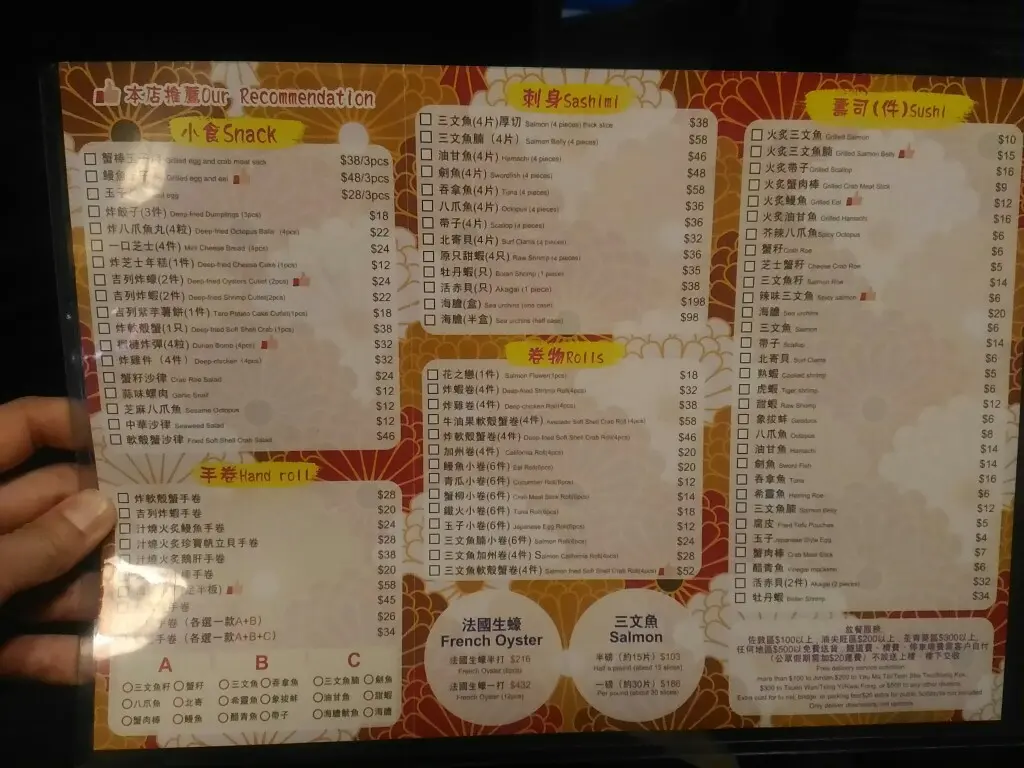 本店推薦Our Recommendation
小食Snack
蟹棒玉 Grilled egg and crab meat stick $38/3pcs
鰻魚 Grilled egg and eel $48/3pcs
玉 egg $28/3pcs
炸餃子(3件) Deep-fried Dumplings (3pcs) $18
炸八爪魚丸(4粒) Deep-fried Octopus Balls (4pcs) $22
一口芝士(4件) Mini Cheese Bread (4pcs) $24
炸芝士年糕(1件) Deep-fried Cheese Cake (1pcs) $12
吉列炸蠔(2件) Deep-fried Oysters Cutlet (2pcs) $24
吉列炸蝦(2件) Deep-fried Shrimp Cutlet(2pcs) $22
吉列紫芋薯餅(1件) Taro Potato Cake Cutlet(1pcs) $18
炸軟殼蟹(1只) Deep-fried Soft Shell Crab (1pcs) $38
榴槤炸彈(4粒) Durian Bomb (4pcs) $32
炸雞件 (4件) Deep-chicken (4pcs) $32
蟹籽沙律 Crab Roe Salad $24
蒜味螺肉 Garlic Snail $12
芝麻八爪魚 Sesame Octopus $12
中華沙律 Seaweed Salad $12
軟殼蟹沙律 Fried Soft Shell Crab Salad $46
手卷Hand roll
炸軟殼蟹手卷 $28
吉列炸蝦手卷 $20
汁燒火炙鰻魚手卷 $24
汁燒火炙珍寶帆立貝手卷 $28
汁燒火炙鵝肝手卷 $38
手卷 $20
半板) $58
手卷 $45
手卷 (各選一款A+B) $26
手卷 (各選一款A+B+C) $34
A B C
三文魚籽 蟹籽 三文魚 吞拿魚 三文魚腩 劍魚
八爪魚 北寄 希靈魚 象拔蚌 油甘魚 甜蝦
蟹肉棒 鰻魚 醋青魚 帶子 海膽魷魚 海膽
刺身Sashimi
三文魚(4片)厚切 Salmon (4 pieces) thick slice $38
三文魚腩 (4片) Salmon Belly (4 pieces) $58
油甘魚(4片) Hamachi (4 pieces) $46
劍魚(4片) Swordfish (4 pieces) $48
吞拿魚(4片) Tuna (4 pieces) $58
八爪魚(4片) Octopus (4 pieces) $36
帶子(4片) Scallop (4 pieces) $36
北寄貝(4片) Surf Clams (4 pieces) $32
原只甜蝦(4只) Raw Shrimp (4 pieces) $36
牡丹蝦(只) Botan Shrimp (1 piece) $35
活赤貝(只) Akagai (1 piece) $38
海膽(盒) Sea urchins (one case) $198
海膽(半盒) Sea urchins (half case) $98
卷物Rolls
花之戀(1件) Salmon Flower(1pcs) $18
炸蝦卷(4件) Deep-fried Shrimp Roll(4pcs) $32
炸雞卷(4件) Deep-chicken Roll(4pcs) $38
牛油果軟殼蟹卷(4件) Avocado Soft Shell Crab Roll (4pcs) $58
炸軟殼蟹卷(4件) Deep-fried Soft Shell Crab Roll(4pcs) $46
加州卷(4件) California Roll(4pcs) $20
鰻魚小卷(6件) Eel Roll(6pcs) $20
青瓜小卷(6件) Cucumber Roll(6pcs) $12
蟹柳小卷(6件) Crab Meat Stick Roll(6pcs) $14
鐵火小卷(6件) Tuna Roll(6pcs) $18
玉子小卷(6件) Japanese Egg Roll(6pcs) $12
三文魚腩小卷(6件) Salmon Roll(6pcs) $24
三文魚加州卷(4件) Salmon California Roll(4pcs) $28
三文魚軟殼蟹卷(4件) Salmon fried Soft Shell Crab Roll(4pcs) $52
法國生蠔
French Oyster
法國生蠔半打 $216
French Oyster (6pcs)
法國生蠔一打 $432
French Oyster (12pcs)
三文魚
Salmon
半磅 (約15片) $103
Half a pound (about 15 slices)
一磅 (約30片) $186
Per pound (about 30 slices)
壽司(件)Sushi
火炙三文魚 Grilled Salmon $10
火炙三文魚腩 Grilled Salmon Belly $15
火炙帶子 Grilled Scallop $16
火炙蟹肉棒 Grilled Crab Meat Stick $9
火炙鰻魚 Grilled Eel $12
火炙油甘魚 Grilled Hamachi $16
芥辣八爪魚 Spicy Octopus $6
蟹籽 Crab Roe $6
芝士蟹籽 Cheese Crab Roe $5
三文魚籽 Salmon Roe $14
辣味三文魚 Spicy salmon $6
海膽 Sea urchins $20
三文魚 Salmon $6
帶子 Scallop $14
北寄貝 Surf Clams $6
熟蝦 Cooked shrimp $5
虎蝦 Tiger shrimp $6
甜蝦 Raw Shrimp $12
象拔蚌 Geoduck $6
八爪魚 Octopus $8
油甘魚 Hamachi $14
劍魚 Sword Fish $14
吞拿魚 Tuna $16
希靈魚 Herring Roe $6
三文魚腩 Salmon Belly $12
腐皮 Fried Tofu Pouches $5
玉子 Japanese Style Egg $4
蟹肉棒 Crab Meat Stick $7
醋青魚 Vinegar mackerel $6
活赤貝(2件) Akagai (2 pieces) $32
牡丹蝦 Botan Shrimp $34
放餐服務
佐敦區$100以上, 油尖旺區$200以上, 荃青葵區$300以上,
任何地區$500以免費貨送, 隧道費、橋費、停車場費需客戶自付
(公眾假期需加$20運費) 不設送上樓 樓下交收
Free delivery service condition